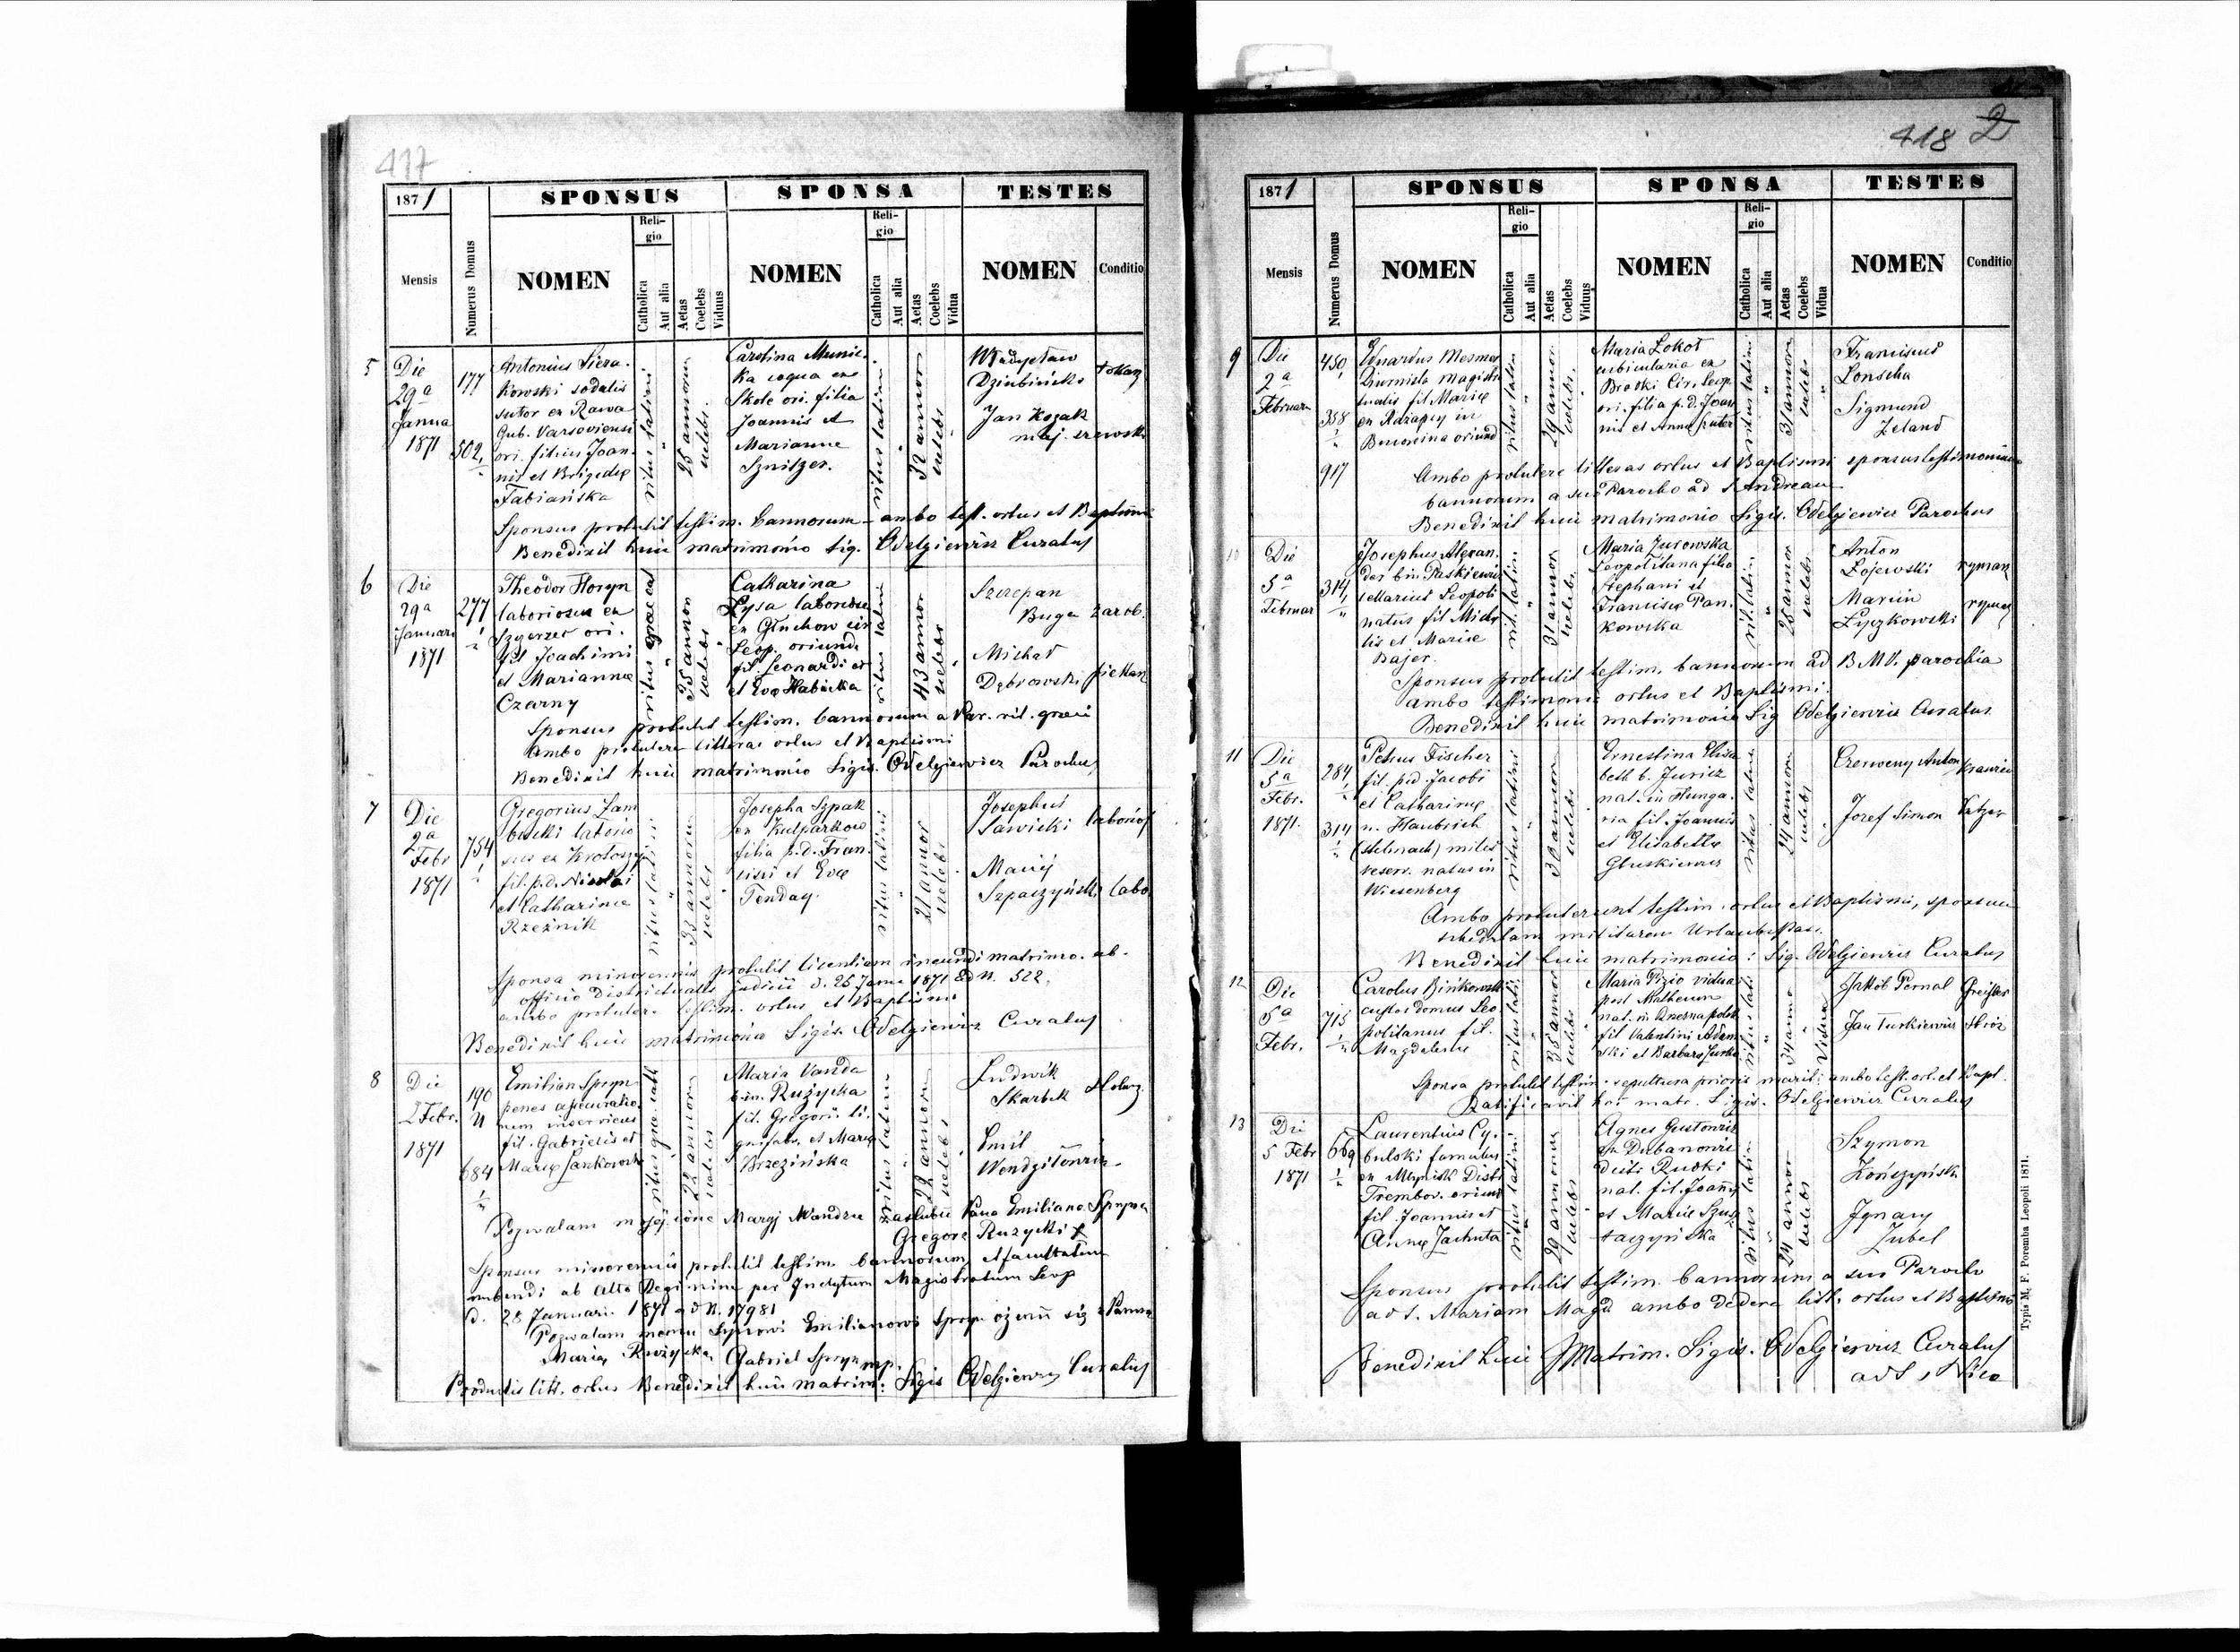 417
1871
SPONSUS
SPONSA
TESTES
Mensis
Numerus Domus
NOMEN
Religio
Catholica
Aut alia
Aetas
Coelebs
Viduus
NOMEN
Religio
Catholica
Aut alia
Aetas
Coelebs
Vidua
NOMEN
Conditio
5
Die
29a
Janua
1871
177
502
Antonius Siera-
kowski sodalis
sutor ex Rawa
Gub. Varsoviensi
ori. filius Joan-
nis et Brigidae
Fabiańska
ritus latini
25 annorum
caelebs
Carolina Munic-
ka coqua ex
Skole ori. filia
Joannis et
Marianna
Sznitzer.
ritus latini
32 annor
caelebs
Władysław
Dziubiński
tokarz
Jan Kozak
maj. szewski
Sponsus protulit testim. bannorum ambo test. ortus et Baptismi
Benedixit huic matrimonio Sig. Odelgiewicz Curatus
6
Die
29a
Januari
1871
277
Theodor Horyn
laboriosus ex
ori.
fil Joachimi
et Marianna
Czarny
ritus graeci
35 annor
caelebs
Catharina
Łysa laboriosa
ex Głuchow cir
Leop. oriunda
fil. Leonardi et
et Eva Habicka
ritus latini
43 annor
caelebs
Szczepan
Buga zarob.
Michał
Dąbrowski piekarz
Sponsus protulit testim. bannorum a Par. rit. graeci
Ambo protulere litteras ortus et Baptismi
Benedixit huic matrimonio Sigis. Odelgiewicz Parochus
7
Die
2a
Febr
1871
754
Gregorius Zam
bucki laborio
sus ex Krotoszy
fil. p.d. Nicolai
et Catharina
Rzeźnik
ritus latini
33 annorum
caelebs
Josepha Szpak
ex Kulparkow
filia p.d. Fran-
cisci et Eva
Tenday.
ritus latini
21 annor
caelebs
Josephus
Sawicki laborios
Maciej
Szpaczyński labo
Sponsa minorennis protulit licentiam ineundi matrimo. ab
officio Districtualis judicii d. 25 Janu 1871 ad N. 522.
ambo protulere testim. ortus et Baptismi
Benedixit huic matrimonio Sigis. Odelgiewicz Curatus
8
Die
2 Febr.
1871
190
684
Emilian Spryn
penes assecuratio
nem inserviens
fil. Gabrielis et
Maria Jankowska
22 annorum
caelebs
Maria Vanda
bim. Rużycka
fil. Gregorii li-
gnifabr. et Maria
Brzezińska
ritus latini
22 annorum
caelebs
Ludwik
Skarbek stolarz
Emil
Wendziłowicz
Pozwalam mojej córce Maryi Wandzie zaślubić Pana Emiliana Spryna
Gregorz Ruzycki
Sponsus minorennis protulit testim. bannorum et facultatem
nubendi ab Alto Regimine per Inclytum Magistratum Leop
d. 28 Januari. 1871 ad N. 17981
Pozwalam memu Synowi Emilianowi Spryn ożenić się z Panną
Marią Rużycką, Gabriel Spryn mp.
Productis litt. ortus Benedixit huic matrim: Sigis Odelgiewicz Curatus
418 2
1871
SPONSUS
SPONSA
TESTES
Mensis
Numerus Domus
NOMEN
Religio
Catholica
Aut alia
Aetas
Coelebs
Viduus
NOMEN
Religio
Catholica
Aut alia
Aetas
Coelebs
Vidua
NOMEN
Conditio
9
Die
2a
Februar
450
358
917
Eduardus Mesmer
Diurnista Magistra
tualis fil Maria
ex in
Bucovina oriund
ritus latin
29 annor
caelebs.
Maria Lokot
cubicularia ex
Brodki Cir. Leop.
ori. filia p.d. Joan
nis et Anna
ritus latini
31 annor
caelebs
Franciscus
Lonscha
Sigmund
Zeland
Ambo protulere litteras ortus et Baptismi sponsus testimonium
bannorum a suo Parocho ad S. Andream
Benedixit huic matrimonio Sigis. Odelgiewicz Parochus
10
Die
5a
Februar
314
Josephus Alexan.
der bim Paskiewicz
cellarius Leopoli
natus fil Micha
lis et Maria
Bajer.
rit. latin
31 annor
caelebs
Maria Jurowska
Leopolitana filia
Stephani et
Francisca Pan-
kowska
rit latin
25 annor
caelebs
Anton
Łojewski rymarz
Marcin
Łyczkowski rymar
Sponsus protulit testim. bannorum ad B.M.V. parochia
ambo testimoni ortus et Baptismi.
Benedixit huic matrimonio Sig Odelgiewicz Curatus
11
Die
5a
Febr.
1871.
284
314
Petrus Fischer
fil. p.d. Jacobi
et Catharina
n. Haubrich
miles
reserv. natus in
Wiesenberg
ritus latini
30 annor
caelebs
Ernestina Elisa
beth b. Juricz
nat. in Hunga-
ria fil. Joannis
et Elisabetha
Gluskiewicz
ritus latin
24 annorum
caelebs
Czerweny Anton krawiec
Jozef Simon
Ambo protulerunt testim. ortus et Baptismi, sponsus
schedulam militarem Urlaubspass.
Benedixit huic matrimonio: Sig. Odelgiewicz Curatus
12
Die
5a
Febr.
715
Carolus Bińkowski
custos domus Leo
politanus fil.
Magdalena
ritus lati
35 annor
caelebs
Maria Pizio vidua
post Matheum
nat. in
fil Valentini Adam
ski et Barbara
34 anno
Vidua
Jakob Pernal Greisler
Jan Turkiewicz Stróż
Sponsa protulit testim. sepultura prioris mariti ambo test. ort. et Bapt.
Ratificavit hoc matr. Sigis. Odelgiewicz Curatus
13
Die
5 Febr
1871
669
Laurentius Cy-
bulski famulus
ex Distr
Trembow. oriund
fil Joannis et
Anna Jachuta
ritus latini
29 annorum
caelebs
Agnes Gustowicz
ex Dubanowic
Distr Rudki
nat. fil. Joannis
et Maria Szus-
taczyńska
ritus latin
24 annor
caelebs
Szymon
Kończyński
Ignacy
Zubel
Sponsus protulit testim. bannorum a suo Parocho
ad S. Mariam Magd ambo dedere litt. ortus et Baptismi
Benedixit huic Matrim. Sigis. Odelgiewicz Curatus
ad S. Nico
Typis M. F. Poremba Leopoli 1871.